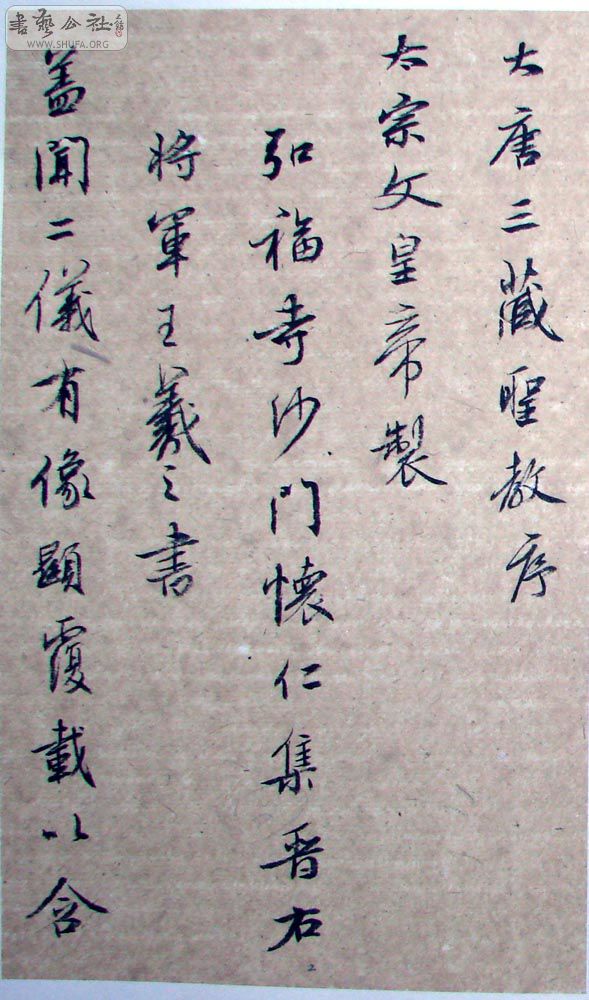 大唐三藏聖教序
太宗文皇帝製
弘福寺沙門懷仁集晋右
將軍王羲之書
蓋聞二儀有像顯覆載以含
2
書藝公社
WWW.SHUFA.ORG